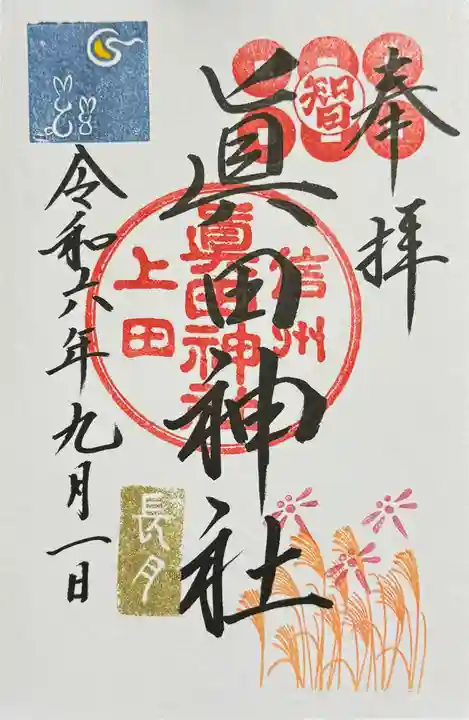 奉拝
智
眞田神社
信州
眞田神社
上田
令和六年九月一日
長月